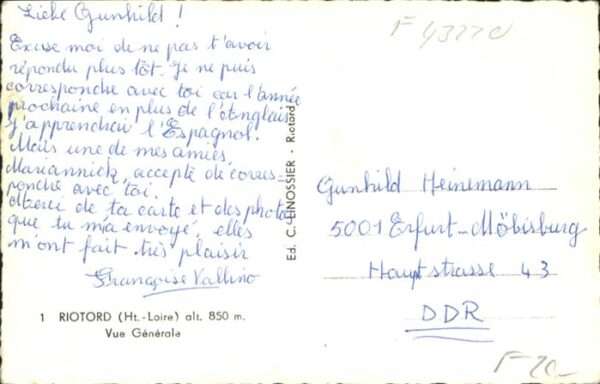 Liebe Gunhild !
Excuse moi de ne pas t'avoir
répondu plus tôt. Je ne puis
correspondre avec toi car l'année
prochaine en plus de l'Anglais
j'apprendrai l'Espagnol.
Mais une de mes amies,
Mariannick, accepte de corres-
pondre avec toi.
Merci de ta carte et des photos
que tu m'a envoyé, elles
m'ont fait très plaisir
Françoise Vallino
1 RIOTORD (Ht.-Loire) alt. 850 m.
Vue Générale
Ed. C. LINOSSIER - Riotord
F 43220
Gunhild Heinemann
5001 Erfurt-Möbisburg
Hauptstrasse 43
DDR
F 20.-